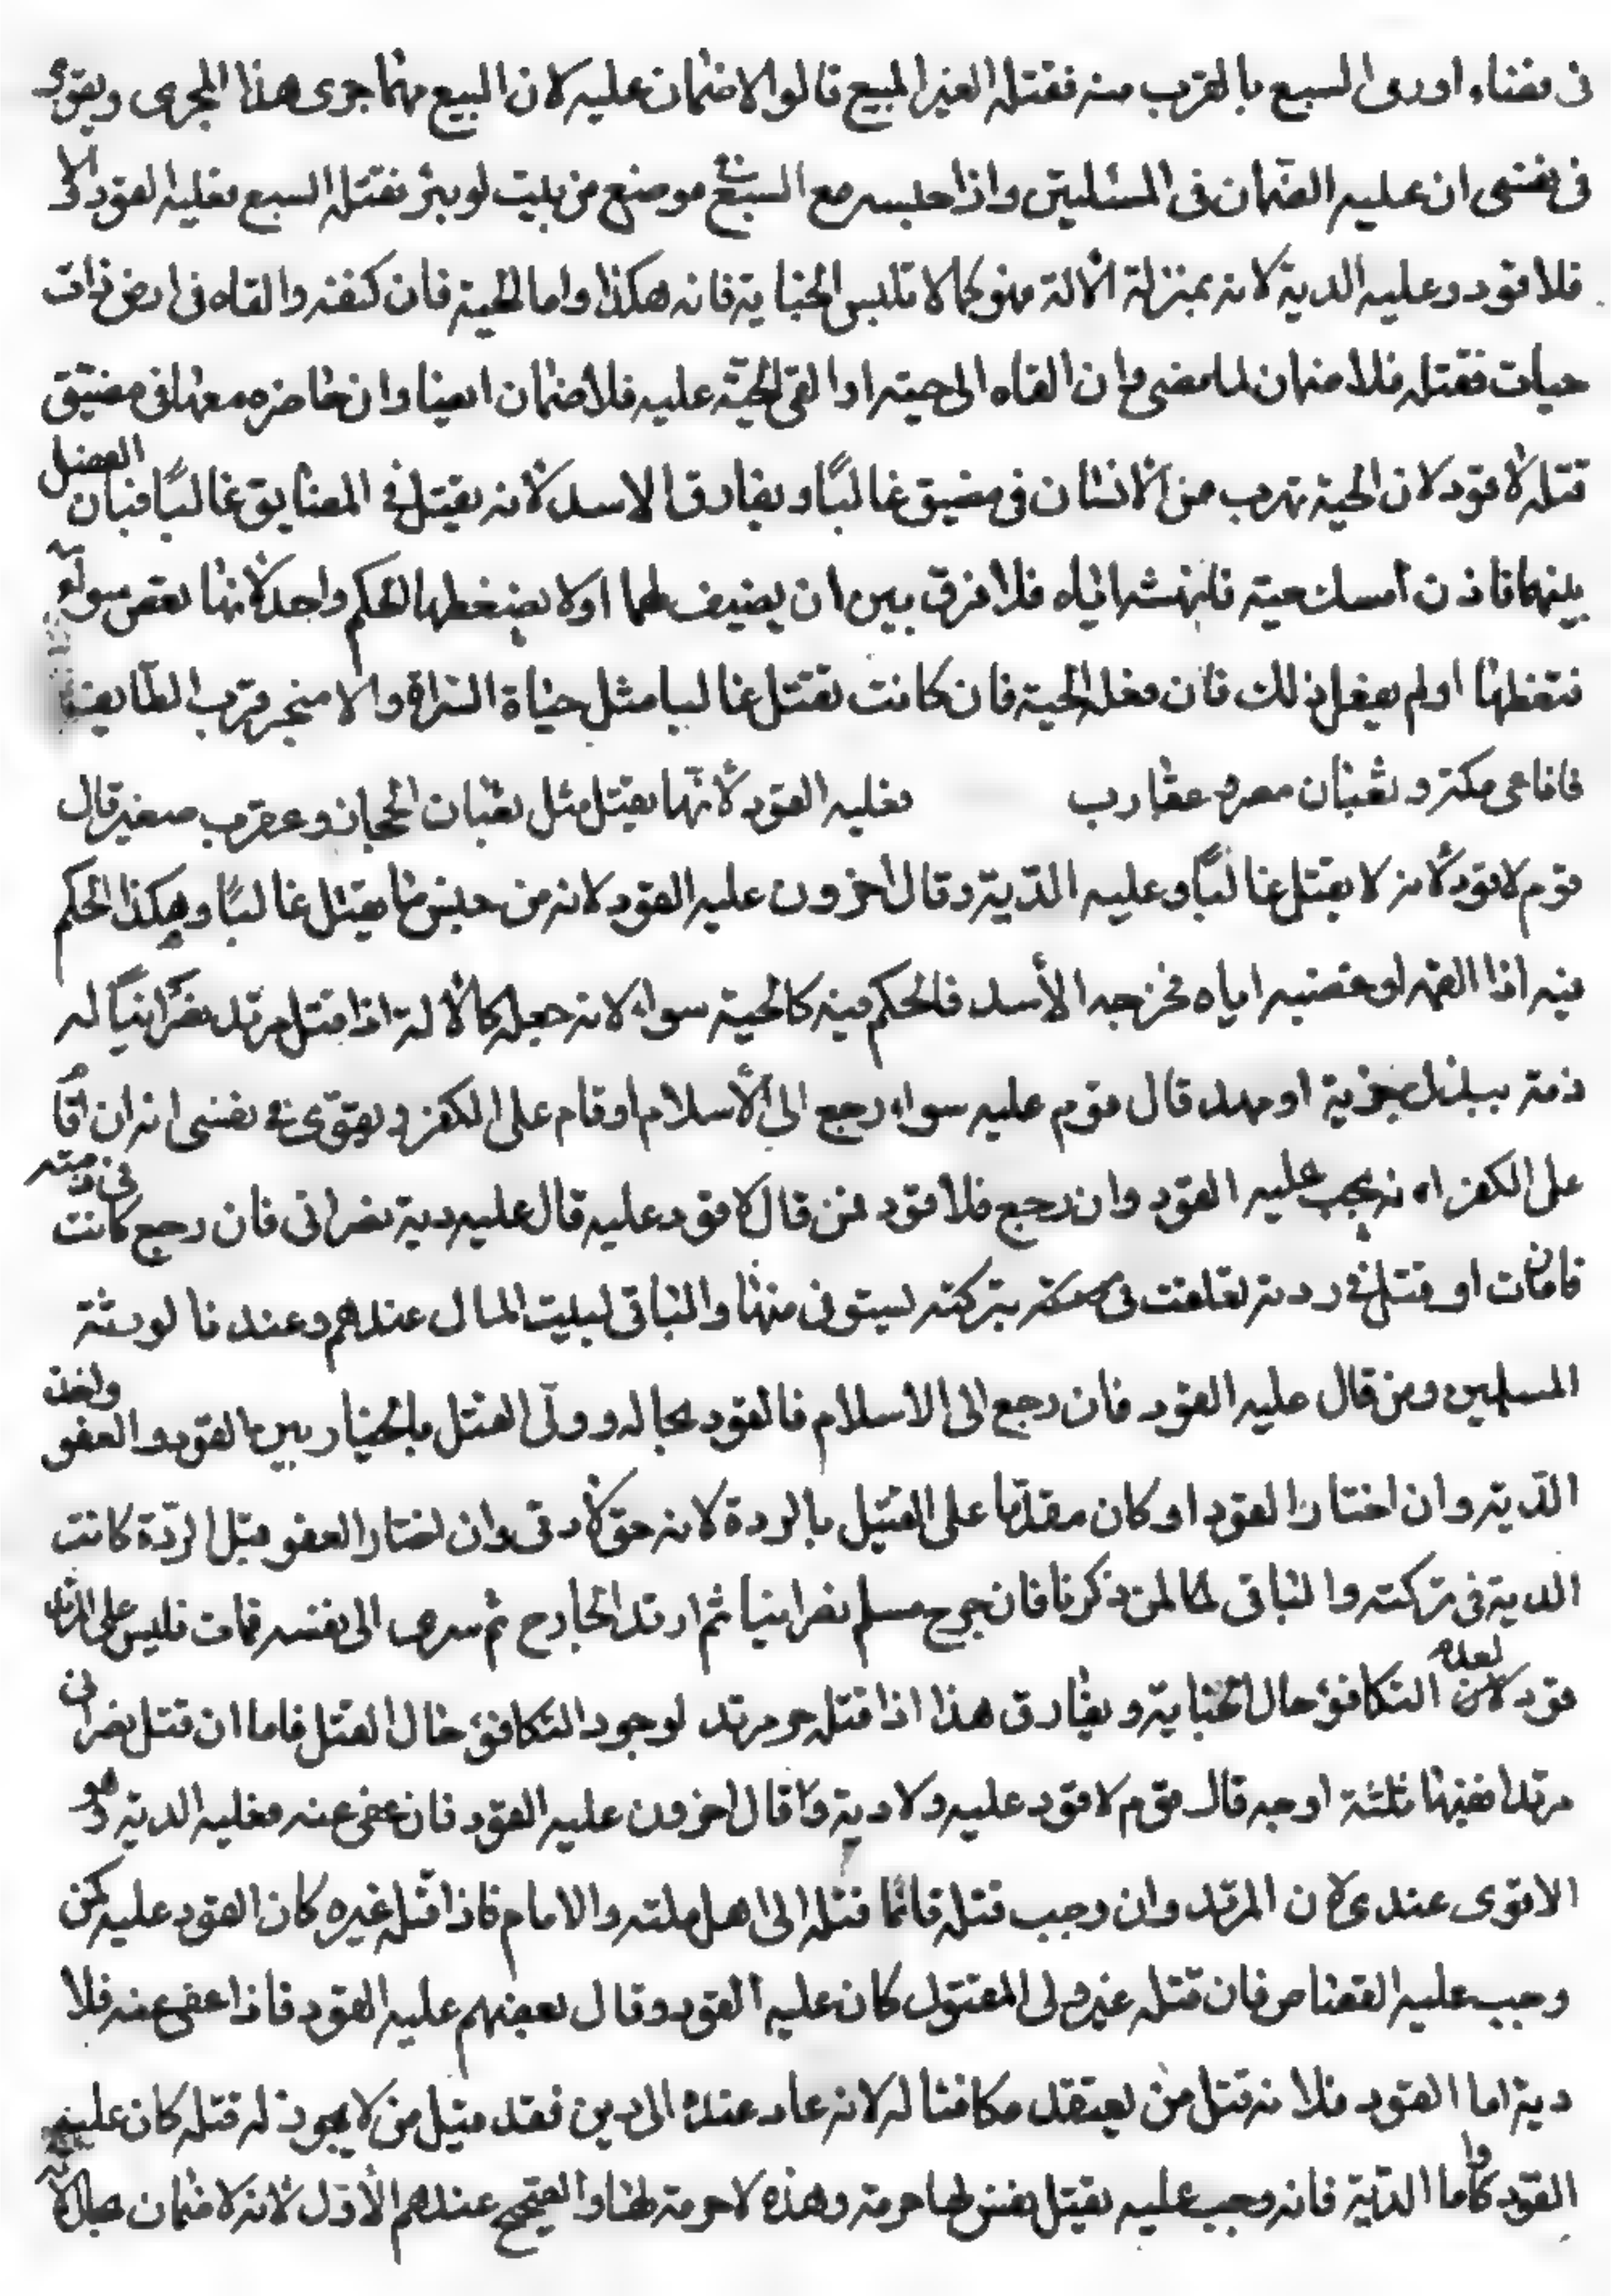 فى فضاء اورمى السبع بالقرب منه فقتله الغير المبيع قالوا لا ضمان عليه لان البيع مهما جرى هذا المجرى ويقوى
فى نفسى ان عليه الضمان فى المسئلتين واذا حبسه مع السبع فى موضع من بيت او بئر فقتله السبع فعليه القود والا
فلا قود وعليه الدية لانه بمنزلة الالة فهو كما لا تلبس الجناية فانه هكذا واما الحية فان كنفه والقاه فى ارض ذات
حيات فقتله فلا ضمان لما مضى وان القاه الى حية او القى الحية عليه فلا ضمان ايضا وان حاضره معها فى مضيق
قتله لا قود لان الحية تهرب من الانسان فى مضيق غالبًا ويفارق الاسد لانه يقتل فى المضايق غالبًا فبان الفصل
بينهما فاذن امسك حية فانهشه اياه فلا فرق بين ان يضيف لهما او لا يضغطها الحكم واحد لانها تعض سواء
ضغطها او لم يفعل ذلك فان فعل الحية فان كانت تقتل غالبا مثل حياة السراة والا منجر قرب الطايف
فافاعى مكة وثعبان مصر وعقارب فعليه القود لانها يقتل مثل ثعبان الحجاز وعقرب صغير قال
قوم لا قود لانه لا يقتل غالبًا وعليه الدّية وقال اخرون عليه القود لانه من جنس ما يقتل غالبًا وهكذا الحكم
فيه اذا القمه او غضبه اياه فخرجه الأسد فالحكم فيه كالحية سواء لانه جعله كالآلة اذا قتل مرتد نصرانيًا له
ذمة ببذل جزية او مهد قال قوم عليه سواء رجع الى الأسلام او قام على الكفر ويقوّى فى نفسى انه ان اقا
على الكفر انه يجب عليه القود وان رجع فلا قود فمن قال لا قود عليه قال عليه دية نصرانى فان رجع كانت فى ذمته
فان مات او قتل فى ردته تعلقت بتركته يستوفى منها والباقى لبيت المال عندهم وعندنا لورثته
المسلمين ومن قال عليه القود فان رجع الى الاسلام فالقود بحاله وولّى القتل بالخيار بين القود والعفو واخذ
الدّية وان اختار القود او كان مقدّما على القتيل بالردة لانه حق لادمى وان اختار العفو قبل الردّة كانت
الدية فى تركته والباقى لما لمن ذكرنا فان جرح مسلم نصرانيا ثم ارتد الجارح ثم سرى الى نفسه فمات فليس على
قود لعدم التكافؤ حال الجناية ويفارق هذا اذا قتله حر مرتد لوجود التكافؤ حال القتل فاما ان قتل نصرانى
مرتدا ففيها ثلثة اوجه قال قوم لا قود عليه ولا دية وقال اخرون عليه القود فان عفى عنه فعليه الدية وهو
الاقوى عندى لان المرتد وان وجب قتله فانما قتله الى اهل ملته والامام فاذا قتله غيره كان القود عليه كمن
وجب عليه القصاص فان قتله غير ولى المقتول كان عليه القود وقال بعضهم عليه القود فاذا عفى عنه فلا
دية اما القود فلانه قتل من يعتقد مكافئا له لانه عاد عنده الى دين فقد قتل من لا يجوز له قتله كان عليه
القود واما الدّية فانه وجب عليه بقتل نفس لها حرمة وهذه لا حرمة لها والصحيح عندهم الأوّل لانه لا ضمان